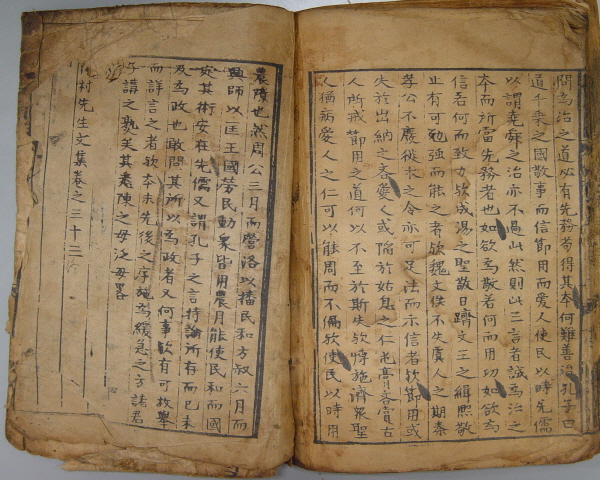 問爲治之道必有先務苟得其本何難善治孔子曰
道千乘之國敬事而信節用而愛人使民以時先儒
以謂堯舜之治亦不過此然則此三言者誠爲治之
本而所當先務者也如欲爲敬若何而用功如欲爲
信若何而致力欤成湯之聖敬日躋文王之緝熙敬
止有可勉強而能之者欤魏文侯不失虞人之期秦
孝公不廢徙木之令亦可足法而示信者欤節用或
失於出納之吝愛人或陷於姑息之仁屯膏吝賞古
人所戒節用之道何以不至於斯失欤博施濟衆聖
人猶病愛人之仁可以能周而不偏欤使民以時用
農隙也然周公三月而營洛以播民和方叔六月而
興師以匡王國勞民動衆皆用農月能使民和而國
定其術安在先儒又謂孔子之言特論所存而已未
及爲政也敢問其所以爲政者又何事欤有可枚舉
而詳言之者欤本末先後之序施爲緩急之方諸君
子講之熟矣其悉陳之毋泛毋畧
村先生文集卷之三十三